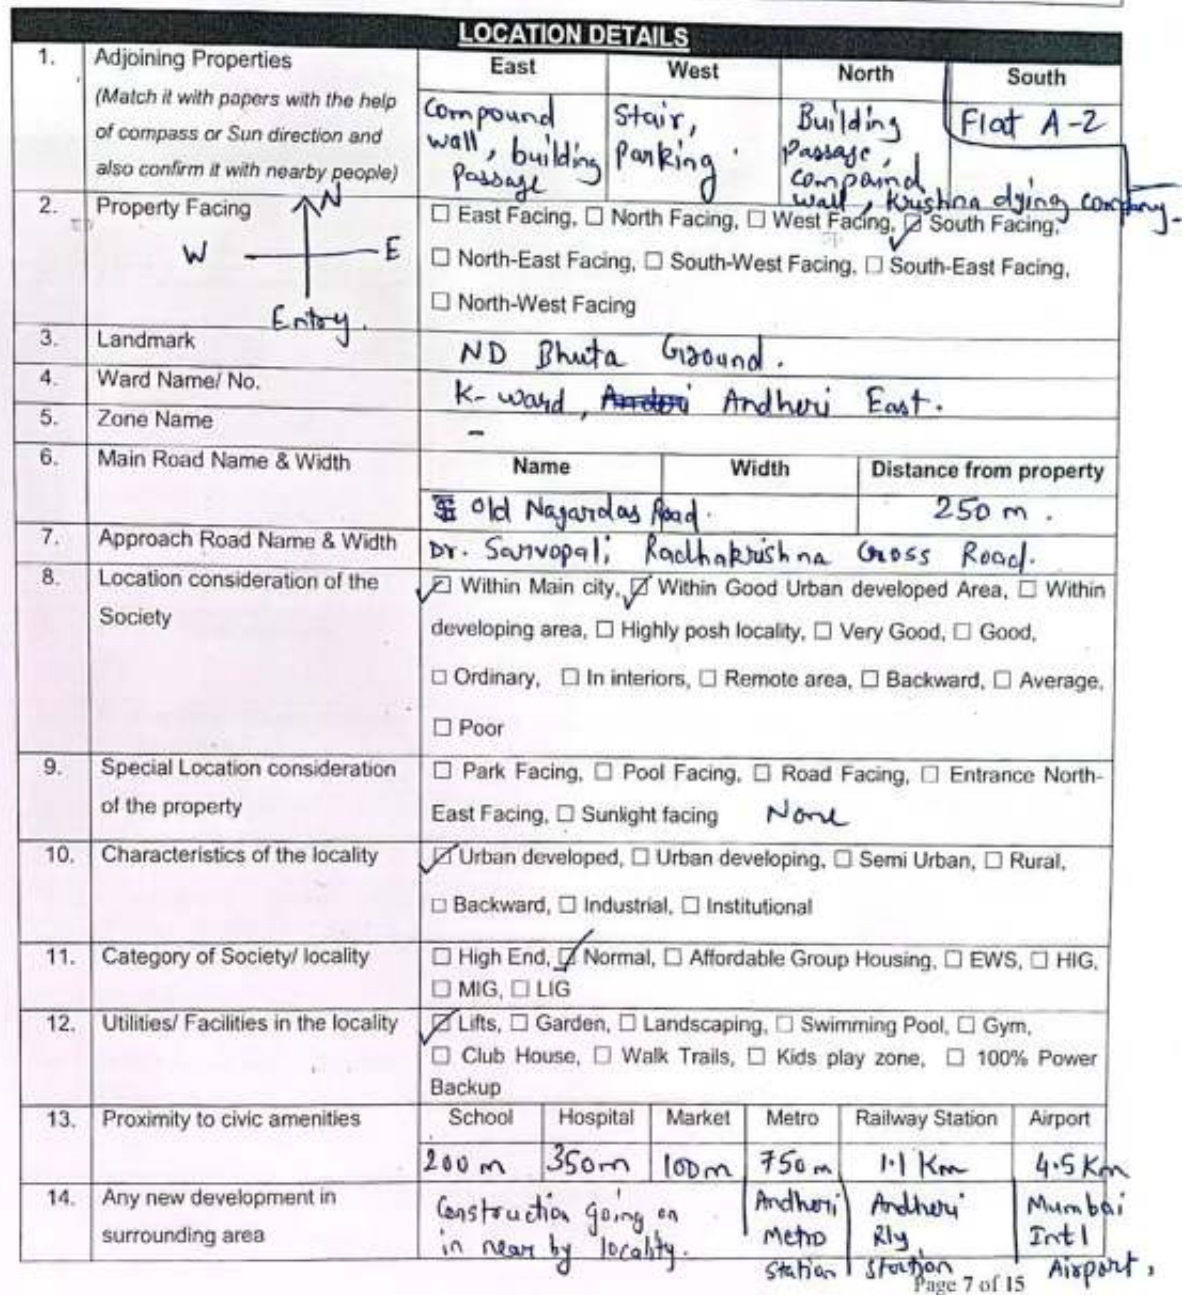 LOCATION DETAILS
1. Adjoining Properties
(Match it with papers with the help
of compass or Sun direction and
also confirm it with nearby people)
East West North South
Compound
wall, building
Passage
Stair,
Parking
Building
Passage,
compaind
wall, Krushna dying company.
Flat A-2
2. Property Facing
N
W E
Entry.
☐ East Facing, ☐ North Facing, ☐ West Facing, ☑ South Facing,
☐ North-East Facing, ☐ South-West Facing, ☐ South-East Facing,
☐ North-West Facing
3. Landmark
ND Bhuta Ground.
4. Ward Name/ No.
K- ward, Andheri East.
5. Zone Name
-
6. Main Road Name & Width
Name Width Distance from property
Old Nagardas Road. 250 m.
7. Approach Road Name & Width
Dr. Sarvopali Radhakrishna Cross Road.
8. Location consideration of the
Society
☑ Within Main city, ☑ Within Good Urban developed Area, ☐ Within
developing area, ☐ Highly posh locality, ☐ Very Good, ☐ Good,
☐ Ordinary, ☐ In interiors, ☐ Remote area, ☐ Backward, ☐ Average,
☐ Poor
9. Special Location consideration
of the property
☐ Park Facing, ☐ Pool Facing, ☐ Road Facing, ☐ Entrance North-
East Facing, ☐ Sunlight facing None
10. Characteristics of the locality
☑ Urban developed, ☐ Urban developing, ☐ Semi Urban, ☐ Rural,
☐ Backward, ☐ Industrial, ☐ Institutional
11. Category of Society/ locality
☐ High End, ☑ Normal, ☐ Affordable Group Housing, ☐ EWS, ☐ HIG,
☐ MIG, ☐ LIG
12. Utilities/ Facilities in the locality
☑ Lifts, ☐ Garden, ☐ Landscaping, ☐ Swimming Pool, ☐ Gym,
☐ Club House, ☐ Walk Trails, ☐ Kids play zone, ☐ 100% Power
Backup
13. Proximity to civic amenities
School Hospital Market Metro Railway Station Airport
200 m 350m 100m 750m 1.1 Km 4.5 Km
14. Any new development in
surrounding area
Construction going on
in near by locality.
Andheri
Metro
Station
Andheri
Rly
Station
Mumbai
Int1
Airport,
Page 7 of 15